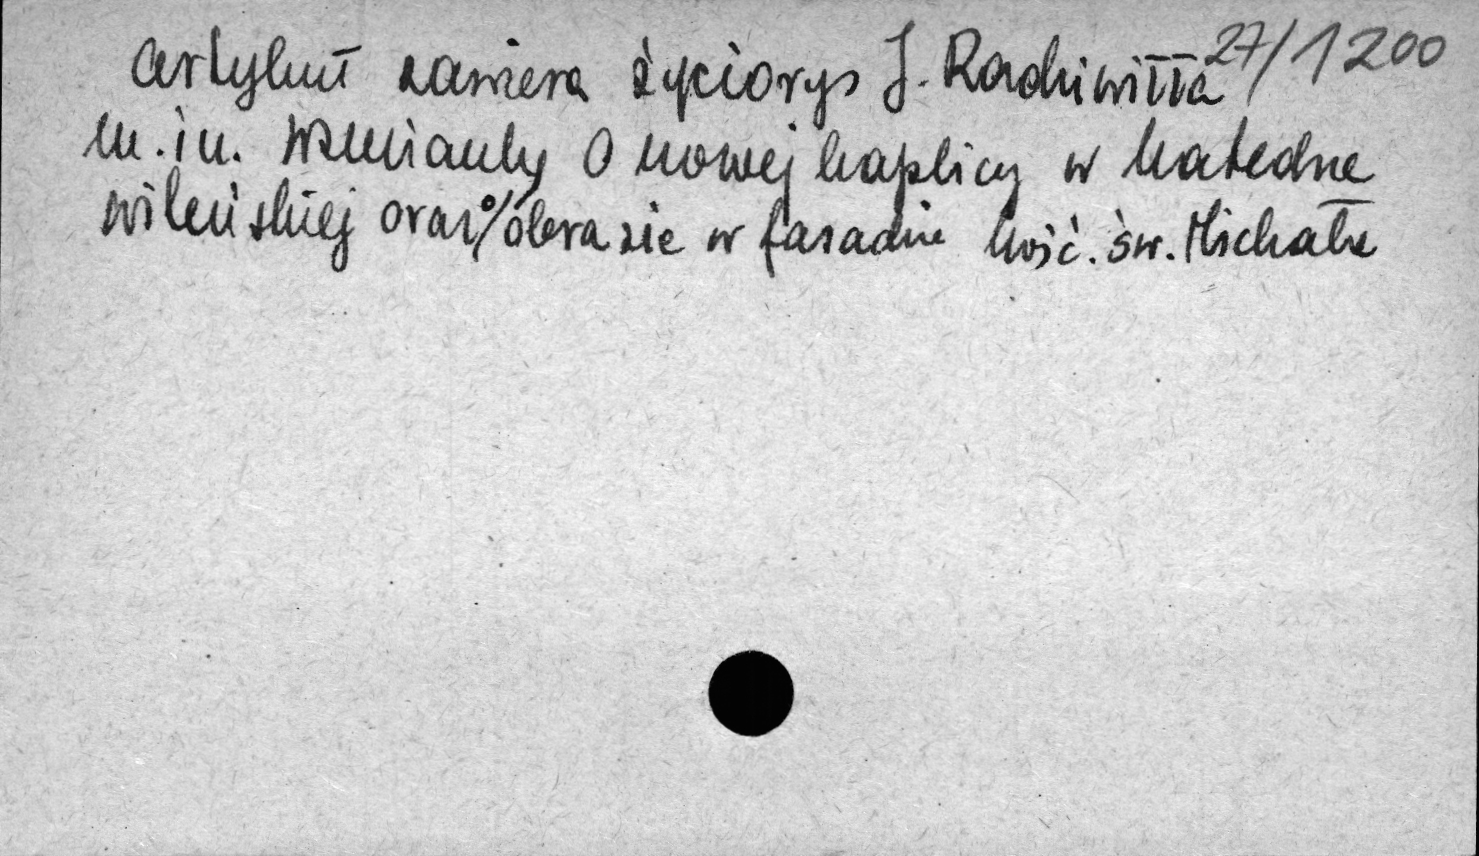 27/1200
artykuł zawiera życiorys J. Radziwiłła
m.in. wzmianky o nowej kaplicy w katedrze
wileńskiej oraz o obrazie w fasadzie kość. św. Michała